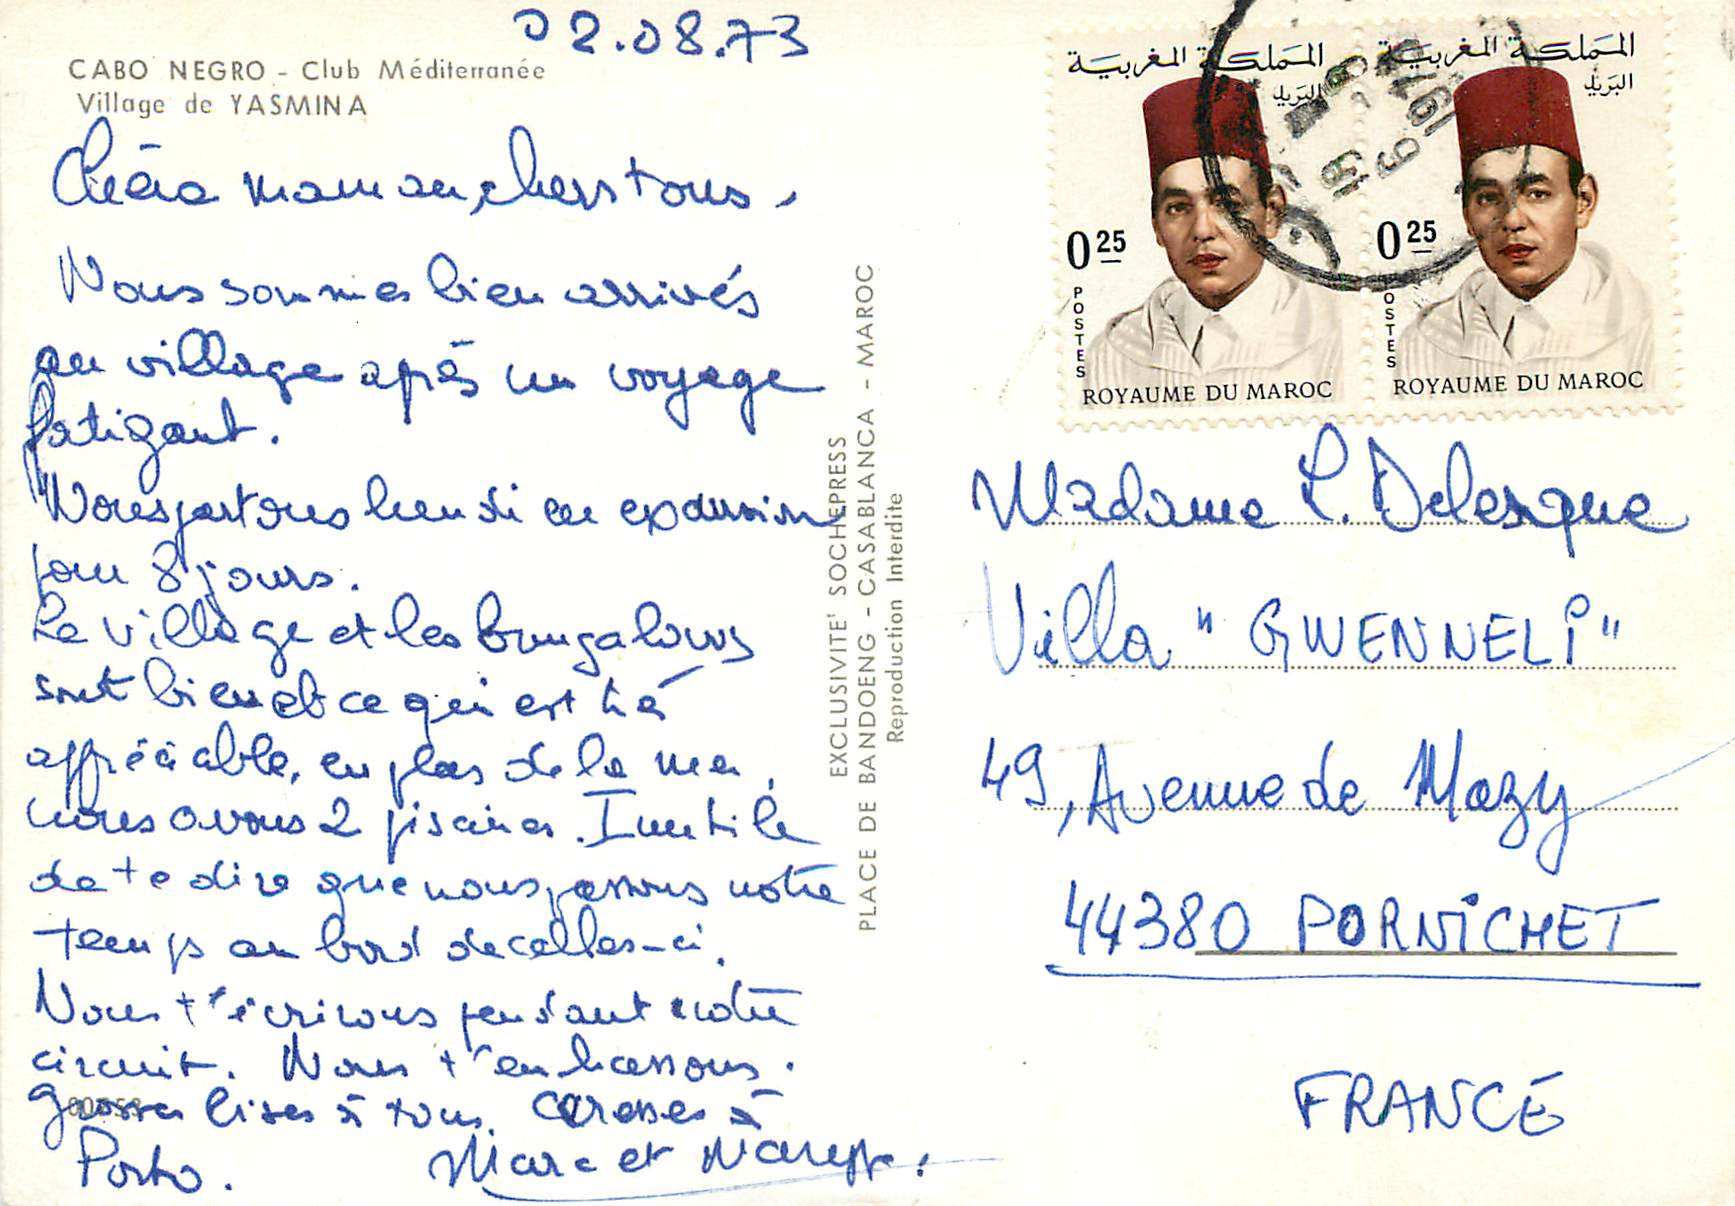 02.08.73
CABO NEGRO - Club Méditerranée
Village de YASMINA
Chère maman, chers tous,
Nous sommes bien arrivés
au village après un voyage
fatigant.
Nous partons lundi en excursion
pour 8 jours.
Le village et les bungalows
sont bien et ce qui est très
appréciable, en plus de la mer,
nous avons 2 piscines. Inutile
de te dire que nous passons notre
temps au bord de celles-ci.
Nous t'écrirons pendant notre
circuit. Nous t'embrassons.
Grosses bises à tous. Caresses à
Porto.
Marc et
EXCLUSIVITE' SOCHEPRESS
PLACE DE BANDOENG - CASABLANCA - MAROC
Reproduction Interdite
المملكة المغربية
البريد
0 25
POSTES
ROYAUME DU MAROC
المملكة المغربية
البريد
0 25
POSTES
ROYAUME DU MAROC
1973
Madame L. Delesque
Villa "GWENNELi"
49, Avenue de Mazy
44380 PORNiCHET
FRANCE